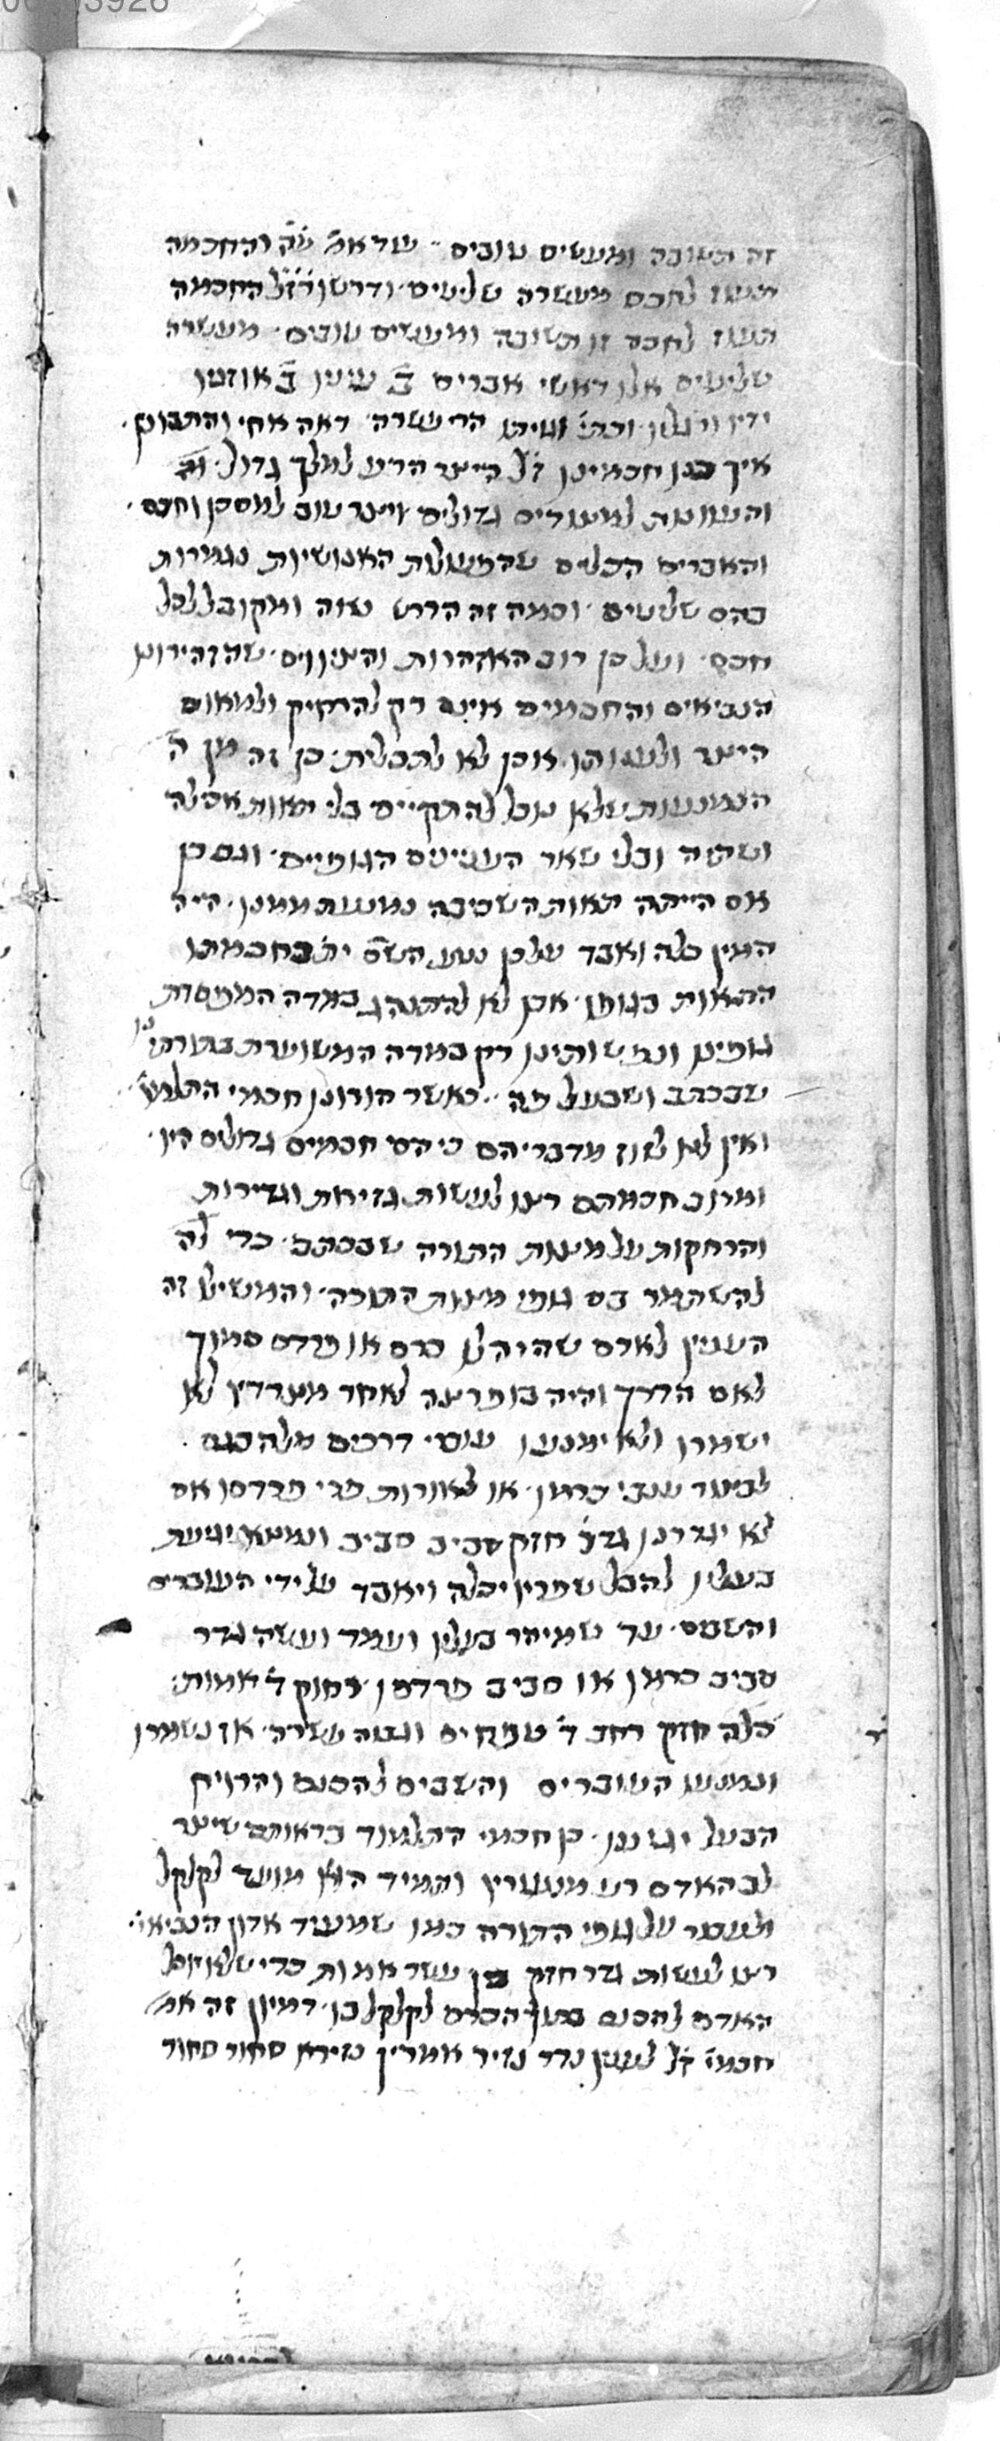 זה תשובה ומעשים טובים שד אח שה והחכמה
תעוז לחכם מעשרה שליטים ודרשו רז״ל החכמה
תעוז לחכם זו תשובה ומעשים טובים מעשרה
שליטים אלו ראשי אברים ב׳ עינין ב׳ אוזנין
ידיו ורגליו ופה וגויתו הרי עשרה ראה אחי והתבונן
איך כנו חכמינו ז״ל היצר הרע למלך גדול
והעונות למצודים גדולים ויצר טוב למסכן וחכם
והאברים הכלים שהפעולות האנושיות נגמרות
בהם שליטים וכמה זה הדרש נאה ומקובל לכל
חכם ועל כן רוב האזהרות והצוויים שהזהירונו
הנביאים והחכמים אינם רק להרחיק ולמאוס
היצר ולענותו אכן לא לתכלית כן זה מן ה׳
הנמנעות שלא נוכל להתקיים בלי תאות אכילה
ושתיה ובלי שאר העניינים הגופניים וגם כן
אם הייתה תאות השכיבה נמנעת ממנו היה
המין כלה ואבד על כן נטע השם ית׳ בחכמתו
התאות בגופנו אכן לא להתנהג במדה המפסדת
גופינו ונפשותינו רק במדה המשוערת בתורתינו
שבכתב ושבעל פה כאשר הורונו חכמי התלמוד
ואין לנו לזוז מדבריהם כי הם חכמים גדולים היו
ומרוב חכמתם רצו לעשות גזירות וגדירות
והרחקות על מצות התורה שבכתב כדי
להשתמר בם גופי מצות התורה והמשילו זה
העניין לאדם שהיה לו כרם או פרדס סמוך
לאם הדרך והיה בו פרצה לאחד מצדדיו לא
ישמרו ולא ימנעו עוברי דרכים מלהכנס
לבצור ענבי כרמו או לאורות פרי פרדסו אם
לא יגדרנו גדר חזק סביב סביב ונמצא יגיעת
בעליו להבל שפריו יכלה ויאבד על ידי העוברים
והשבים עד שמיהר בעליו ועמד ועשה גדר
סביב כרמו או סביב פרדסו רחוק ד׳ אמות
כלה חזק רחב ד׳ טפחים וגבוה עשרה אז נשמרו
ונמנעו העוברים והשבים להכנס והרויח
הבעל יגיעו כן חכמי התלמוד בראותם שיצר
לב האדם רע מנעוריו ותמיד הוא מועד לקלקל
ולעבור על גופי התורה כמו שמעיד אדון הנביאי׳
רצו לעשות גדר חזק מן עשר אמות כדי שלא יוכל
האדם להכנס בתוך הכרם לקלקל בו דמיון זה אמ׳
חכמי׳ ז״ל לענין נדר נזיר אמרין נזירא סחור סחור